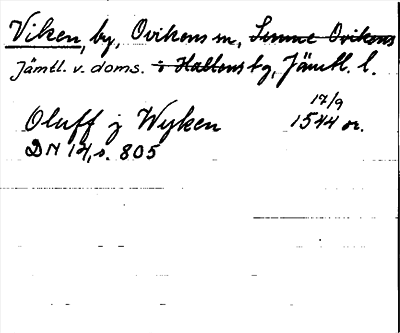 Viken, by, Ovikens sn, Sunne Ovikens
Jämtl. v. doms. i Hallens tg, Jämtl. l.
17/9
Oluff j Wyken 1544 or.
DN 14, s. 805